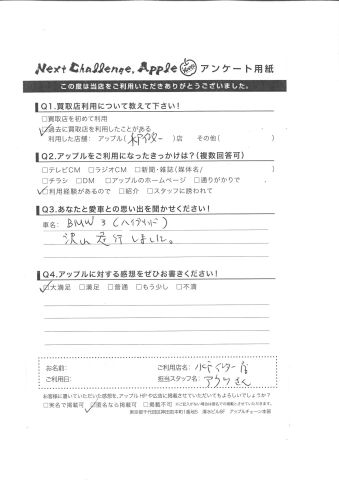 Next Challenge, Apple アンケート用紙
この度は当店をご利用いただきありがとうございました。
Q1.買取店利用について教えて下さい!
□買取店を初めて利用
☑過去に買取店を利用したことがある
利用した店舗: アップル( )店 その他( )
Q2.アップルをご利用になったきっかけは?(複数回答可)
□テレビCM □ラジオCM □新聞・雑誌(媒体名/ )
□チラシ □DM □アップルのホームページ □通りがかりで
☑利用経験があるので □紹介 □スタッフに誘われて
Q3.あなたと愛車との思い出を聞かせください!
車名: BMW 3 (ハイブリッド)
沢山走行しました。
Q4.アップルに対する感想をぜひお書きください!
☑大満足 □満足 □普通 □もう少し □不満
お名前: ご利用店名:
ご利用日: 担当スタッフ名: さん
お客様に書いていただいた感想を、アップルHPや店舗に掲載させていただいてもよろしいでしょうか?
□実名で掲載可 ☑匿名なら掲載可 □掲載不可 ※ご記入がない場合は匿名にて掲載させていただきます。
東京都千代田区神田司本町1番地5 清水ビル6F アップルチェーン本部